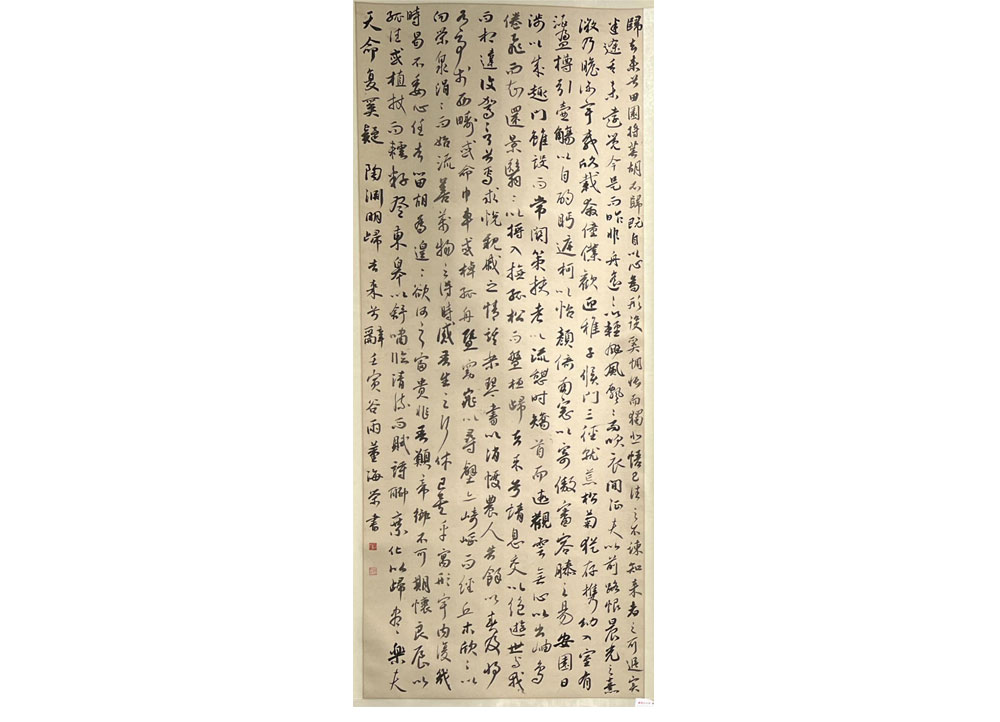 歸去來兮田園將蕪胡不歸既自以心為形役奚惆悵而獨悲悟已往之不諫知來者之可追實
迷途其未遠覺今是而昨非舟遙〻以輕颺風飄〻而吹衣問征夫以前路恨晨光之熹
微乃瞻衡宇載欣載奔僮僕歡迎稚子候門三徑就荒松菊猶存攜幼入室有
酒盈樽引壺觴以自酌眄庭柯以怡顏倚南窗以寄傲審容膝之易安園日
涉以成趣門雖設而常關策扶老以流憩時矯首而遐觀雲無心以出岫鳥
倦飛而知還景翳〻以將入撫孤松而盤桓歸去來兮請息交以絕遊世與我
而相違復駕言兮焉求悅親戚之情話樂琴書以消憂農人告余以春及將
有事於西疇或命巾車或棹孤舟既窈窕以尋壑亦崎嶇而經丘木欣〻以
向榮泉涓〻而始流善萬物之得時感吾生之行休已矣乎寓形宇內復幾
時曷不委心任去留胡為遑〻欲何之富貴非吾願帝鄉不可期懷良辰以
孤往或植杖而耘耔登東皋以舒嘯臨清流而賦詩聊乘化以歸盡樂夫
天命復奚疑 陶淵明歸去來兮辭 壬寅谷雨董海榮書